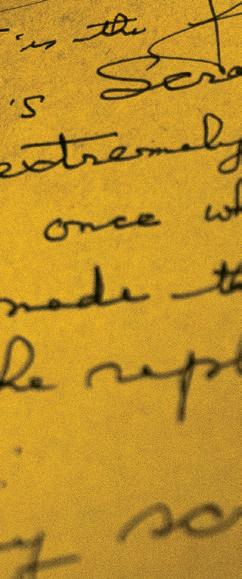 is the
's Scra
extremely
once wh
made th
he repl
y sc